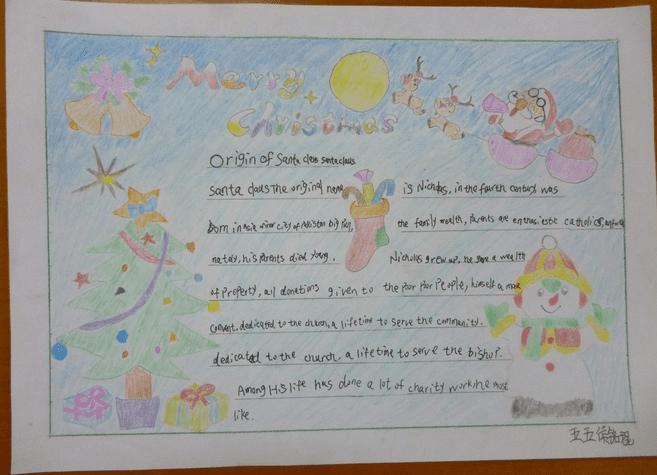 Merry
Christmas
Origin of Santa claus santa claus
santa claus The original name is Nicholas, in the fourth century was
Born in Asia minor city of the family wealth, parents are enthusiastic catholics,
nately, his parents died young. Nicholas grew up, he gave a wealth
of property, all donations given to the poor poor people, himself a
convent, dedicated to the church, a lifetime to serve the community.
dedicated to the church, a lifetime to serve the bishop.
Among His life has done a lot of charity work, he most
like.
五五